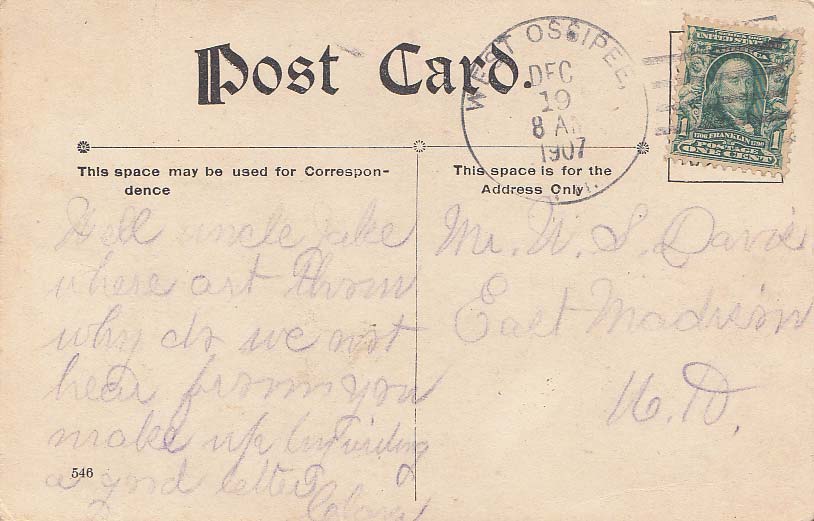 Post Card.
WEST OSSIPEE,
DEC
19
8 AM
1907
N.H.
UNITED STATES
1706 FRANKLIN 1790
1 1
POSTAGE
ONE CENT
This space may be used for Correspon-
dence
Well uncle jake
where art thou
why do we not
hear from you
make up by
a good letter
546
This space is for the
Address Only.
Mr. W. S. Davis
East Madison
N.H.